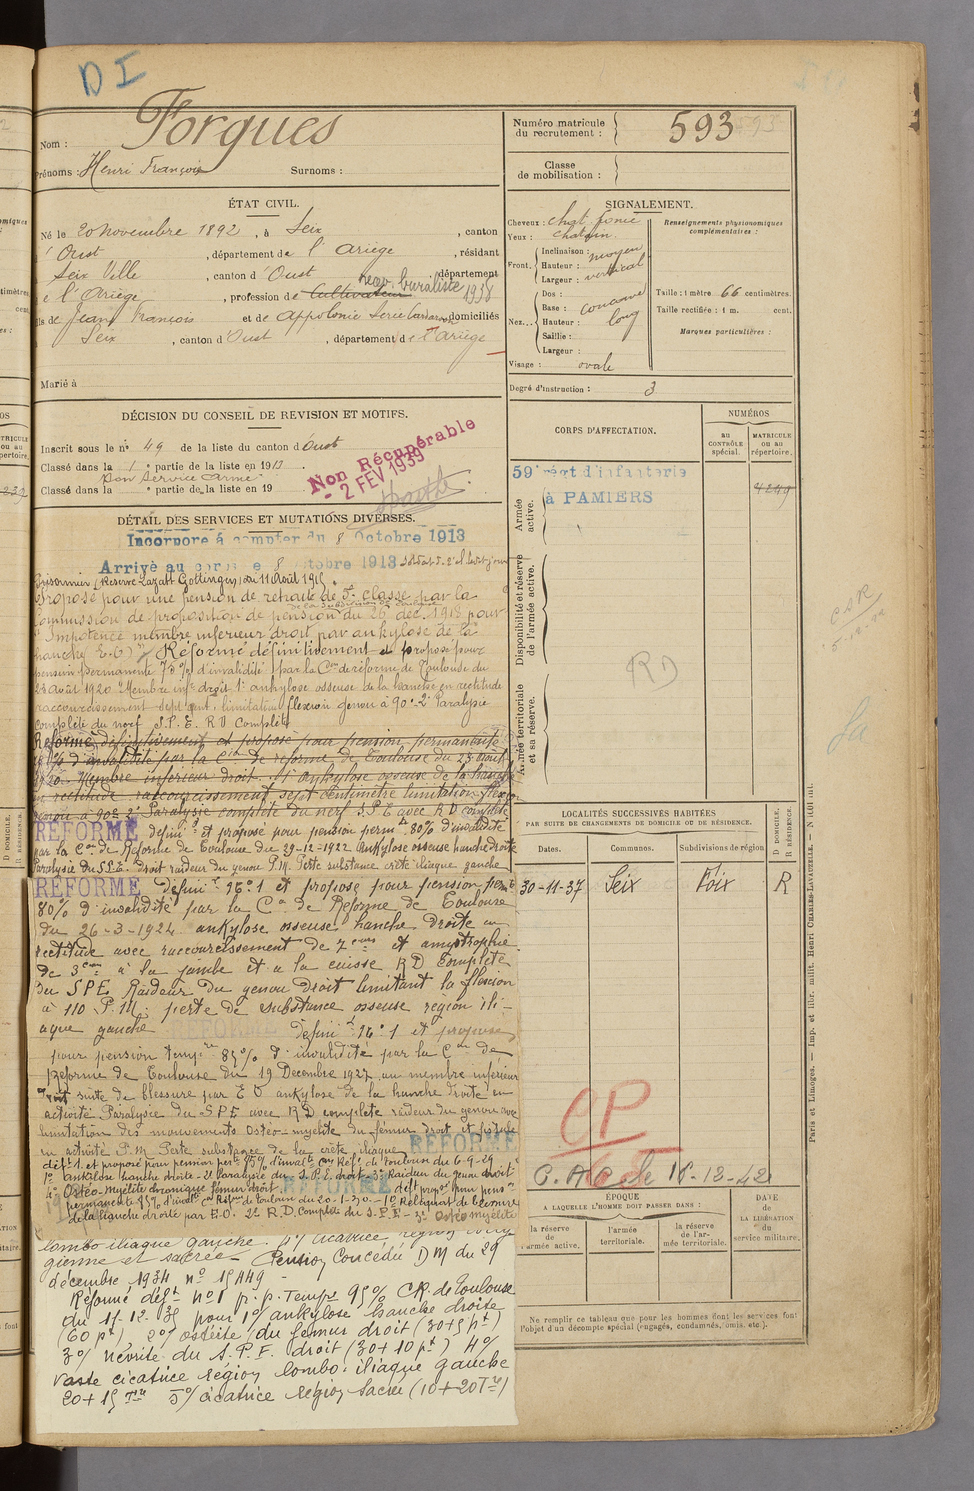 D I
Nom : Forgues
Prénoms : Henri François Surnoms :
Numéro matricule du recrutement : 593
Classe de mobilisation :
ÉTAT CIVIL.
Né le 20 novembre 1892, à Seix, canton
d'Oust, département de l'Ariège, résidant
Seix Ville, canton d'Oust, département
de l'Ariège, profession de Cultivateur buraliste 1938
fils de Jean François et de Appolonie domiciliés
Seix, canton d'Oust, département de l'Ariège
Marié à
SIGNALEMENT.
Cheveux : chat. foncé
Yeux : chatain
Front. Inclinaison : moyen
Hauteur : vertical
Largeur :
Nez. Dos :
Base : concave
Hauteur : long
Saillie :
Largeur :
Visage : ovale
Renseignements physionomiques complémentaires :
Taille : 1 mètre 66 centimètres.
Taille rectifiée : 1 m. cent.
Marques particulières :
Degré d'instruction : 3
DÉCISION DU CONSEIL DE REVISION ET MOTIFS.
Inscrit sous le n° 49 de la liste du canton d'Oust
Classé dans la 1e partie de la liste en 1913
Bon Service Armé
Classé dans la e partie de la liste en 19
Non Récupérable
- 2 FEV 1939
CORPS D'AFFECTATION.
NUMÉROS
AU CONTRÔLE spécial.
MATRICULE OU AU répertoire.
59e régt d'infanterie
à PAMIERS
Armée active.
Disponibilité et réserve de l'armée active.
Armée territoriale et sa réserve.
RD
DÉTAIL DES SERVICES ET MUTATIONS DIVERSES.
Incorporé à compter du 8 Octobre 1913
Arrivé au corps le 8 octobre 1913 soldat de 2e cl. ledit jour
Prisonnier (Reserve Lazaft Gottingen) du 11 Août 1915.
Proposé pour une pension de retraite de 5e classe par la
Commission de proposition de pension de la subdivision de Toulouse du 26 déc. 1918 pour
"Impotence membre inférieur droit par ankylose de la
hanche E.O)". Réformé définitivement et proposé pour
pension permanente 75% d'invalidité par la Con de réforme de Toulouse du
23 Août 1920 "Membre infr droit 1° ankylose osseuse de la hanche en rectitude
raccourcissement sept cent. limitation flexion genou à 90° - 2° Paralysie
complète du nerf S.P.E. R D Complète
Réformé définitivement et proposé pour pension permanente
75% d'invalidité par la Con de réforme de Toulouse du 23 Août
1920. Membre inférieur droit. 1° ankylose osseuse de la hanche
en rectitude raccourcissement sept centimètre limitation flexion
genou à 90° 2° Paralysie complète du nerf S.P.E avec R D complète
RÉFORMÉ définit et proposé pour pension perm. 80% d'invalidité
par la Con de Réforme de Toulouse du 29-12-1922 Ankylose osseuse hanche droite
Paralysie du S.P.E. droit raideur du genou P.M. Perte substance crête iliaque gauche
RÉFORMÉ définit n° 1 et proposé pour pension permte
80% d'invalidité par la Con de Réforme de Toulouse
du 26-3-1924 ankylose osseuse hanche droite en
rectitude avec raccourcissement de 7 cms et amyotrophie
de 3 cms à la jambe et à la cuisse RD Complète
du SPE Raideur du genou droit limitant la flexion
à 110 P.M. perte de substance osseuse région ili-
aque gauche RÉFORMÉ définit n° 1 et proposé
pour pension tempre 85% d'invalidité par la Con de
Réforme de Toulouse du 19 Décembre 1927 au membre inférieur
droit suite de blessure par E O ankylose de la hanche droite en
activité Paralysie du SPE avec RD complète raideur du genou avec
limitation des mouvements Ostéo-myélite du fémur droit et fistule
en activité P.M Perte substance de la crête iliaque RÉFORMÉ
déft 1 et proposé pour pension per. 95% d'invalté con Réfe de Toulouse du 6-9-29
1° ankylose hanche droite - 2° Paralysie du S.P.E. droit 3° Raideur du genou droit
4° Ostéo-myélite chronique fémur droit RÉFORMÉ déft propé pour pension
permanente 95% d'invalté con Réforme de Toulouse du 20-1-30. - 1° Reliquat de blessure
de la hanche droite par E.O. 2° R.D. Complète du S.P.E. - 3° Ostéo myélite
lombo iliaque gauche. 4° cicatrice région
et sacrée - Pension Concédée D M du 29
décembre 1934 n° 15449 -
Réformé déft n° 1 p. p. Tempe 95% C.R. de Toulouse
du 11-12-35 pour 1°/ ankylose hanche droite
(60 pt) 2°/ ostéite du fémur droit (30+5 pt)
3°/ névrite du S.P.E. droit (30+10 pt) 4°/
Vaste cicatrice région lombo-iliaque gauche
20+15 5°/ cicatrice région sacrée (10+20)
LOCALITÉS SUCCESSIVES HABITÉES
PAR SUITE DE CHANGEMENTS DE DOMICILE OU DE RÉSIDENCE.
Dates. Communes. Subdivisions de région D DOMICILE. R RÉSIDENCE.
30-11-37 Seix Foix R
CP
C. A. de 11-12-42
ÉPOQUE
A LAQUELLE L'HOMME DOIT PASSER DANS :
la réserve de l'armée active.
l'armée territoriale.
la réserve de l'armée territoriale.
DATE DE LA LIBÉRATION du service militaire.
Ne remplir ce tableau que pour les hommes dont les services font
l'objet d'un décompte spécial (engagés, condamnés, omis, etc.).
Paris et Limoges. — Imp. et libr. milit. Henri CHARLES-LAVAUZELLE.